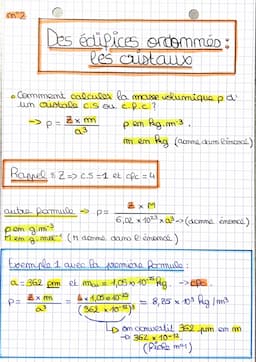 n°2
Des édifices ordonnés :
les cristaux
Comment calculer la masse volumique ρ d'
un cristal c.s ou c.f.c ?
→ ρ = Z × m / a³
ρ en kg.m⁻³
m en kg (donné dans l'énoncé)
Rappel : Z ⇒ c.s = 1 et cfc = 4
autre formule → ρ = Z × M / 6,02 × 10²³ × a³ → (donné énoncé)
ρ en g.m⁻³
M en g.mol⁻¹ (M donné dans l'énoncé)
Exemple 1 avec la première formule :
a = 362 pm et m = 1,05 × 10⁻²⁵ kg → cfc
ρ = Z × m / a³ = 4 × 1,05 × 10⁻²⁵ / (362 × 10⁻¹²)³ = 8,85 × 10³ kg/m³
on convertit 362 pm en m
→ 362 × 10⁻¹²